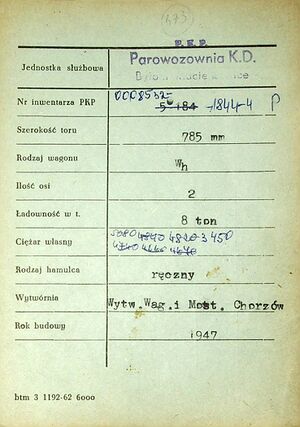 (675)
P.K.P.
Jednostka służbowa Parowozownia K.D.
Nr inwentarza PKP 0008532 184 1844-4 P
Szerokość toru 785 mm
Rodzaj wagonu Wh
Ilość osi 2
Ładowność w t. 8 ton
Ciężar własny 5080 4840 4820 3450
4740 4660 4670
Rodzaj hamulca ręczny
Wytwórnia Wytw.Wag.i Most. Chorzów
Rok budowy 1947
btm 3 1192-62 6000